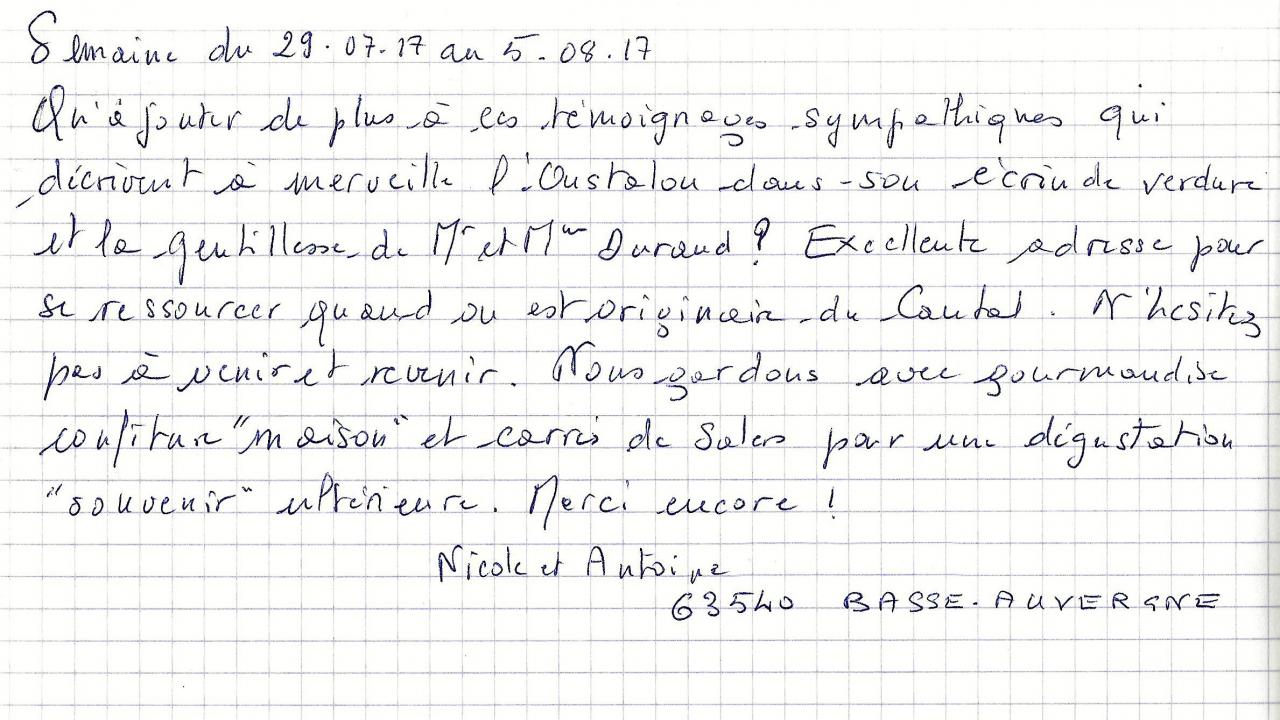 Semaine du 29.07.17 au 5.08.17
Qu'ajouter de plus à ces témoignages sympathiques qui
décrivent à merveille l'Oustalou dans son écrin de verdure
et la gentillesse de Mr et Mme Durand ? Excellente adresse pour
se ressourcer quand on est originaire du Cantal. N'hésitez
pas à venir et revenir. Nous gardons avec gourmandise
confiture "maison" et carrés de Salers pour une dégustation
"souvenir" ultérieure. Merci encore !
Nicole et Antoine
63540 BASSE-AUVERGNE